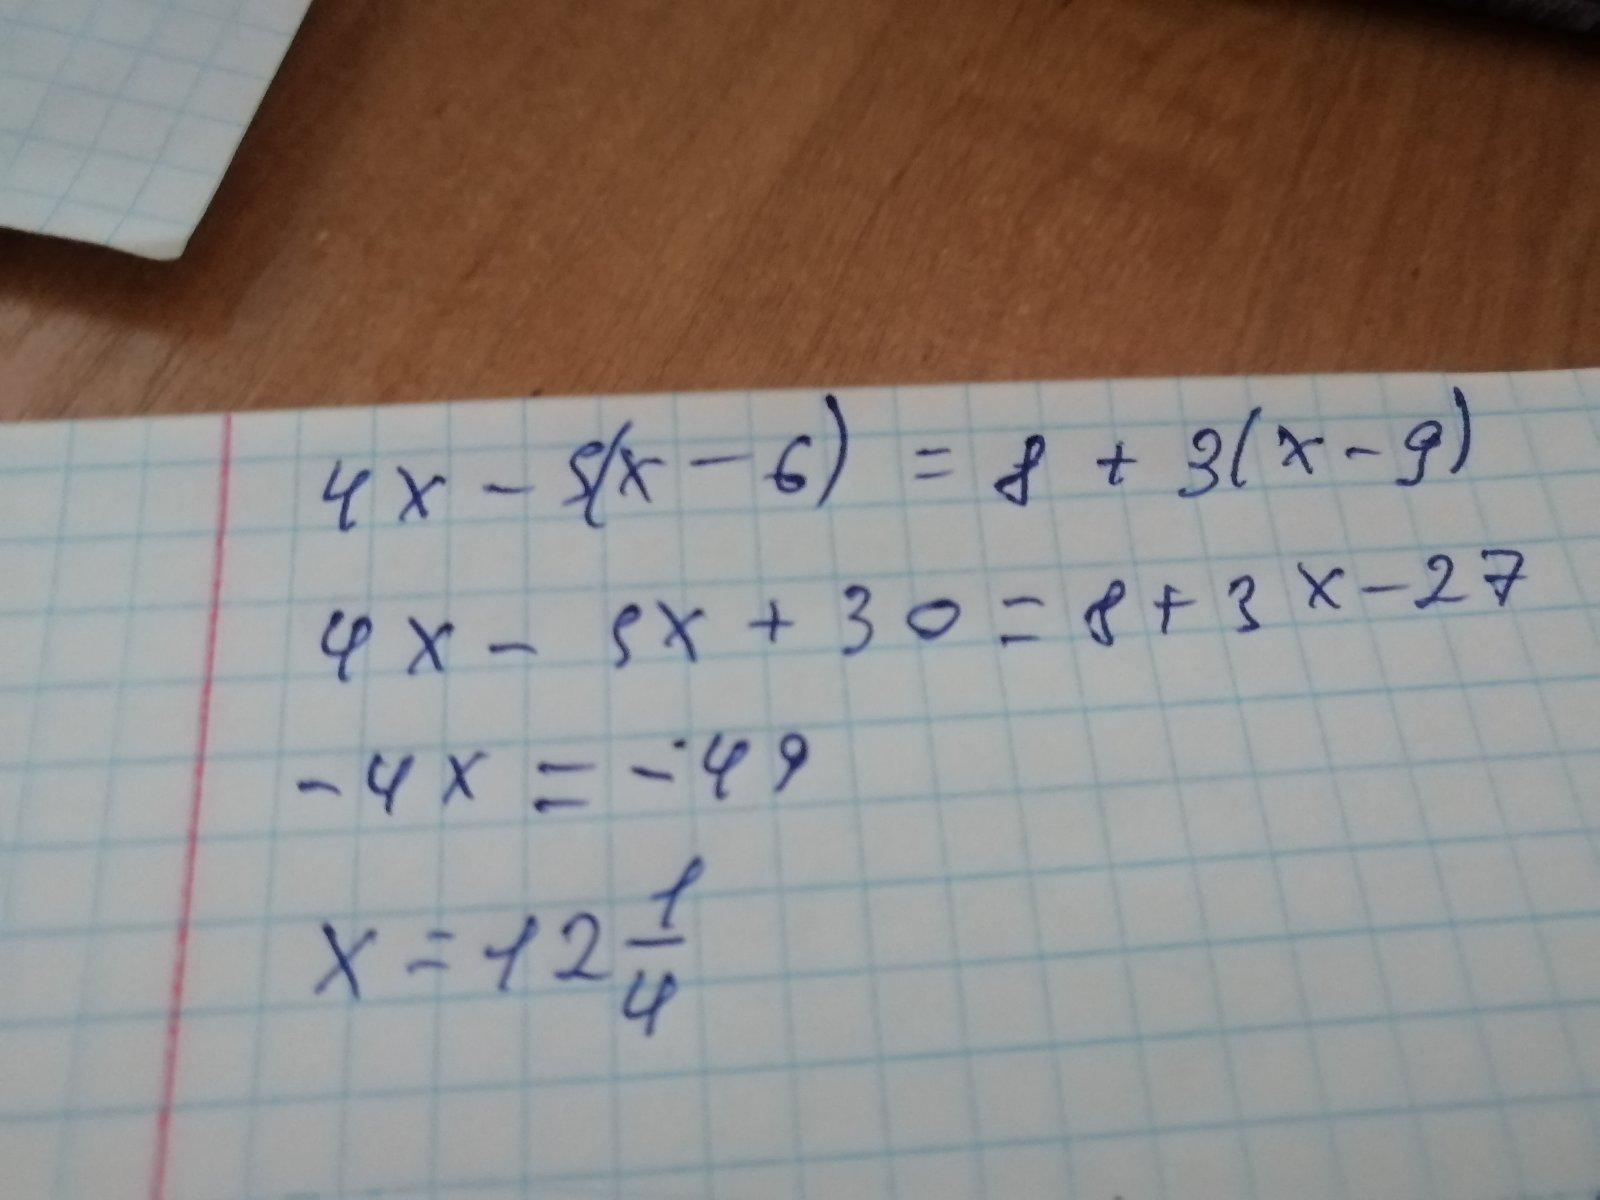 4x - 5(x - 6) = 8 + 3(x - 9)
4x - 5x + 30 = 8 + 3x - 27
-4x = -49
x = 12 1/4